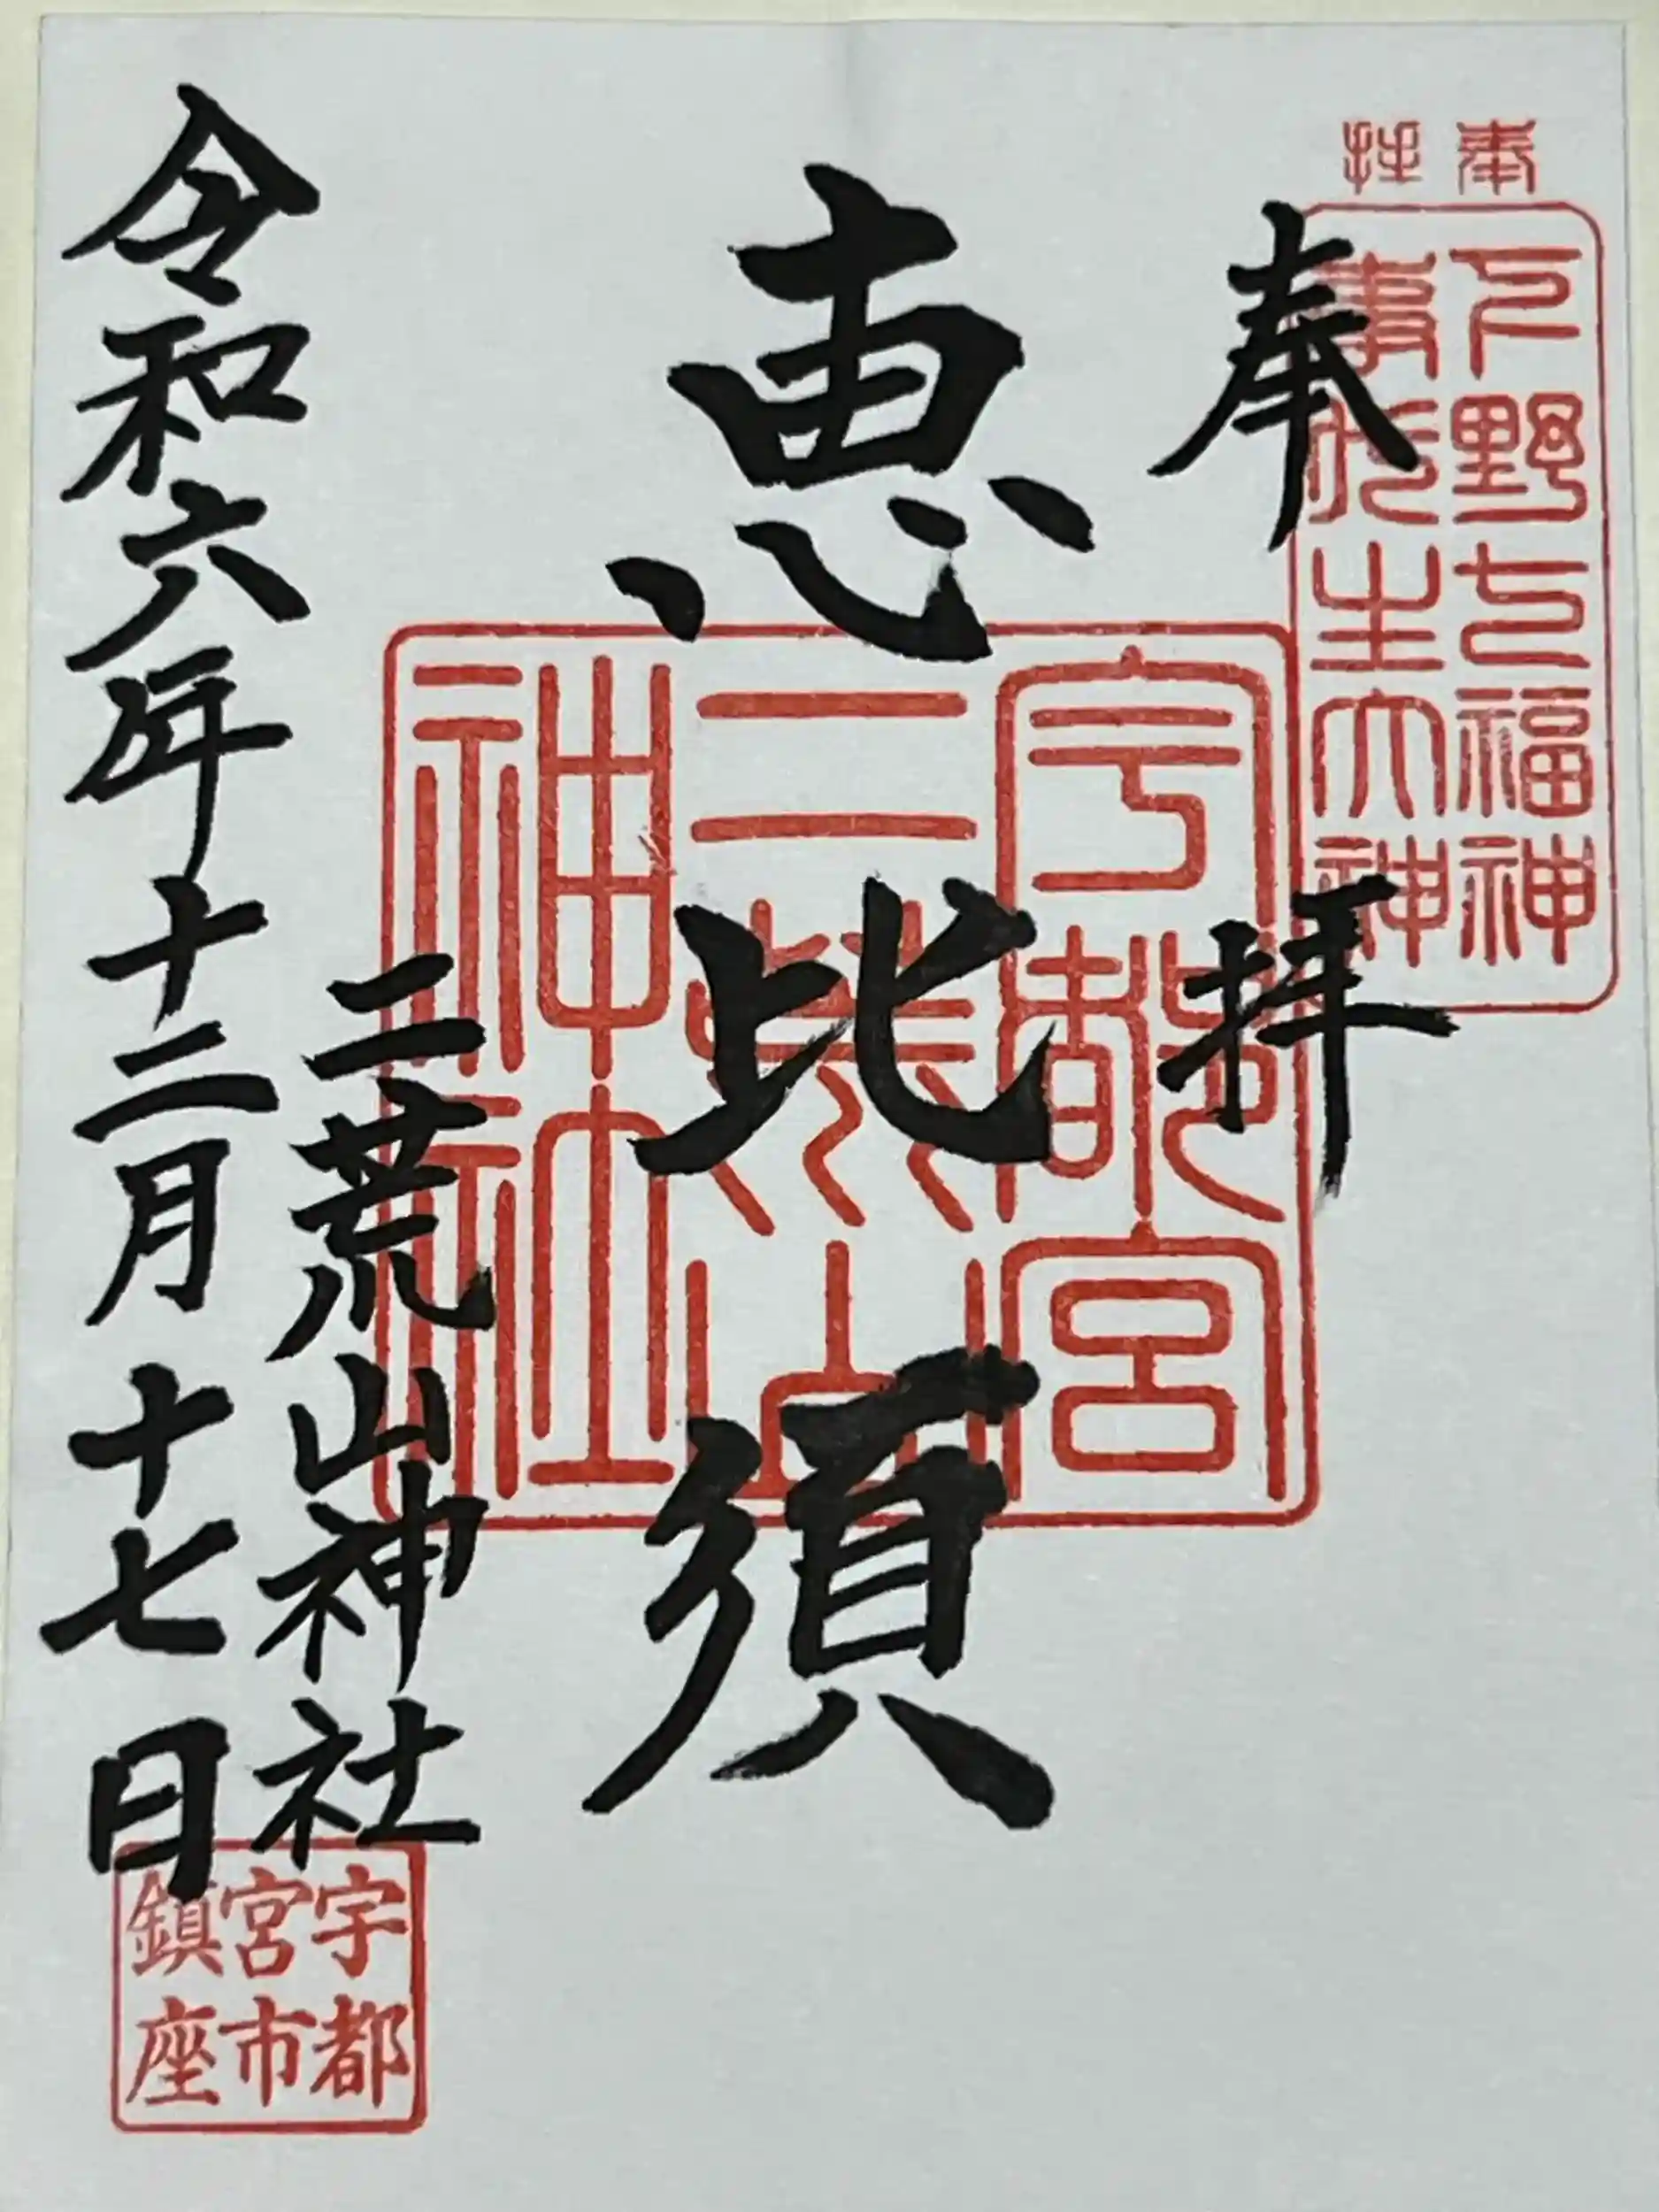 奉拝
下野七福神
事代主大神
奉拝
恵比須
宇都宮
二荒山
神社
二荒山神社
令和六年十二月十七日
宇都
宮市
鎮座